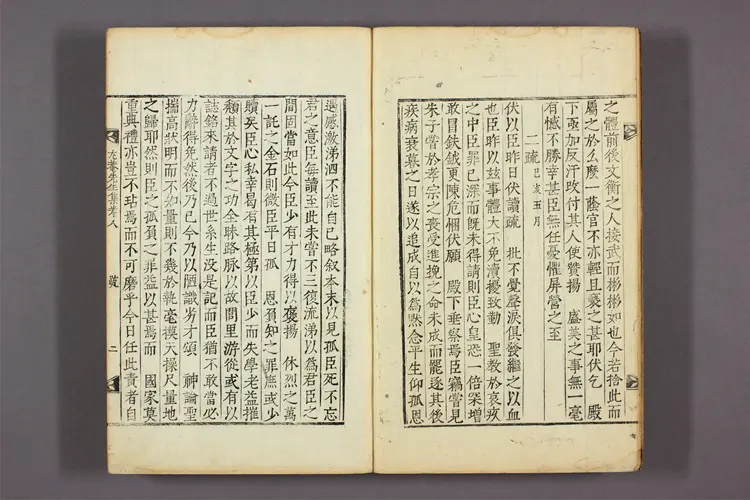 之體前後文衡之人接武而彬彬如也今若捨此而
屬之於幺麼一蔭官不亦輕且褻之甚耶伏乞 殿
下亟加反汗改付其人使贊揚 盛美之事無一毫
有憾不勝幸甚臣無任憂懼屏營之至
二疏 己亥五月
伏以臣昨日伏讀疏 批不覺聲淚俱發繼之以血
也臣昨以玆事體大不免瀆擾致勤 聖教於哀疚
之中臣罪已深而旣未得請則臣心皇恐一倍采增
敢冒鈇鉞更陳危悃伏願 殿下垂察焉臣竊嘗見
朱子嘗於孝宗之喪受進挽之命未成而罷逐其後
疾病衰暮之日遂以追成自以爲黙念平生仰孤恩
遇感激涕泗不能自已略叙本末以見孤臣死不忘
君之意臣每讀至此未嘗不三復流涕以爲君臣之
間固當如此今臣少有才力得以褒揚 休烈之萬
一託之金石則微臣平日孤 恩負知之罪庶或少
贖矣臣心私幸曷有其極第以臣少而失學老益摧
頹其於文字之功全昧路脉以故閭里游從或有以
誌銘來請者不過世系生沒是記而臣猶不敢當必
力辭得免然後乃已今乃以陋識劣才頌 神論聖
揣高狀明而不知量則不幾於執毫摸天操尺量地
之歸耶然則臣之孤負之罪益以甚焉而 國家莫
重典禮亦豈不玷焉而不可磨乎今日任此責者自
尤菴先生集卷八 疏 二